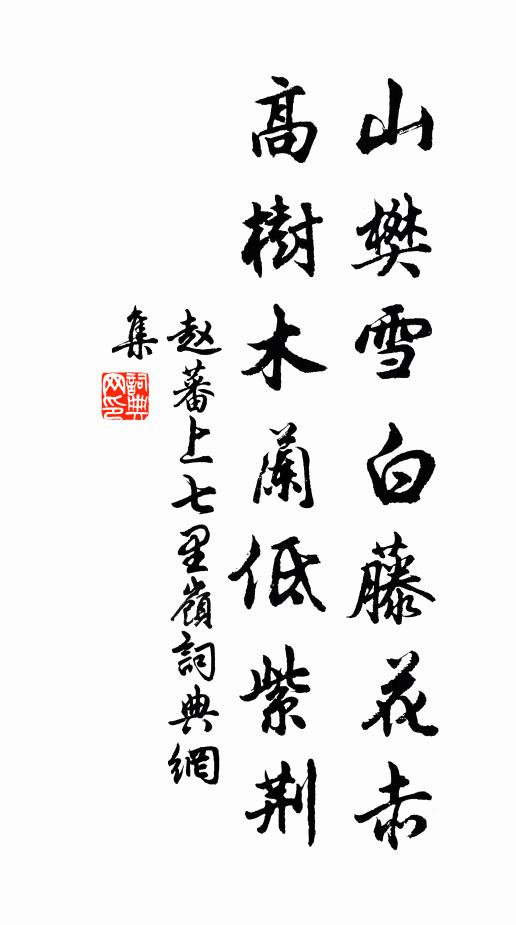 山樊雪白藤花赤
高樹木蘭低紫荆
赵蕃上七里嶺詞典網
集
詞典网印